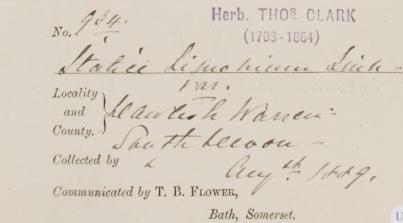 Herb. THOS. CLARK
(1793-1864)
No. 934.
Statice Limonium Linn -
var.
Locality and County. } Dawlish Warren -
South Devon -
Collected by Augst. 1849.
Communicated by T. B. FLOWER,
Bath, Somerset.
U